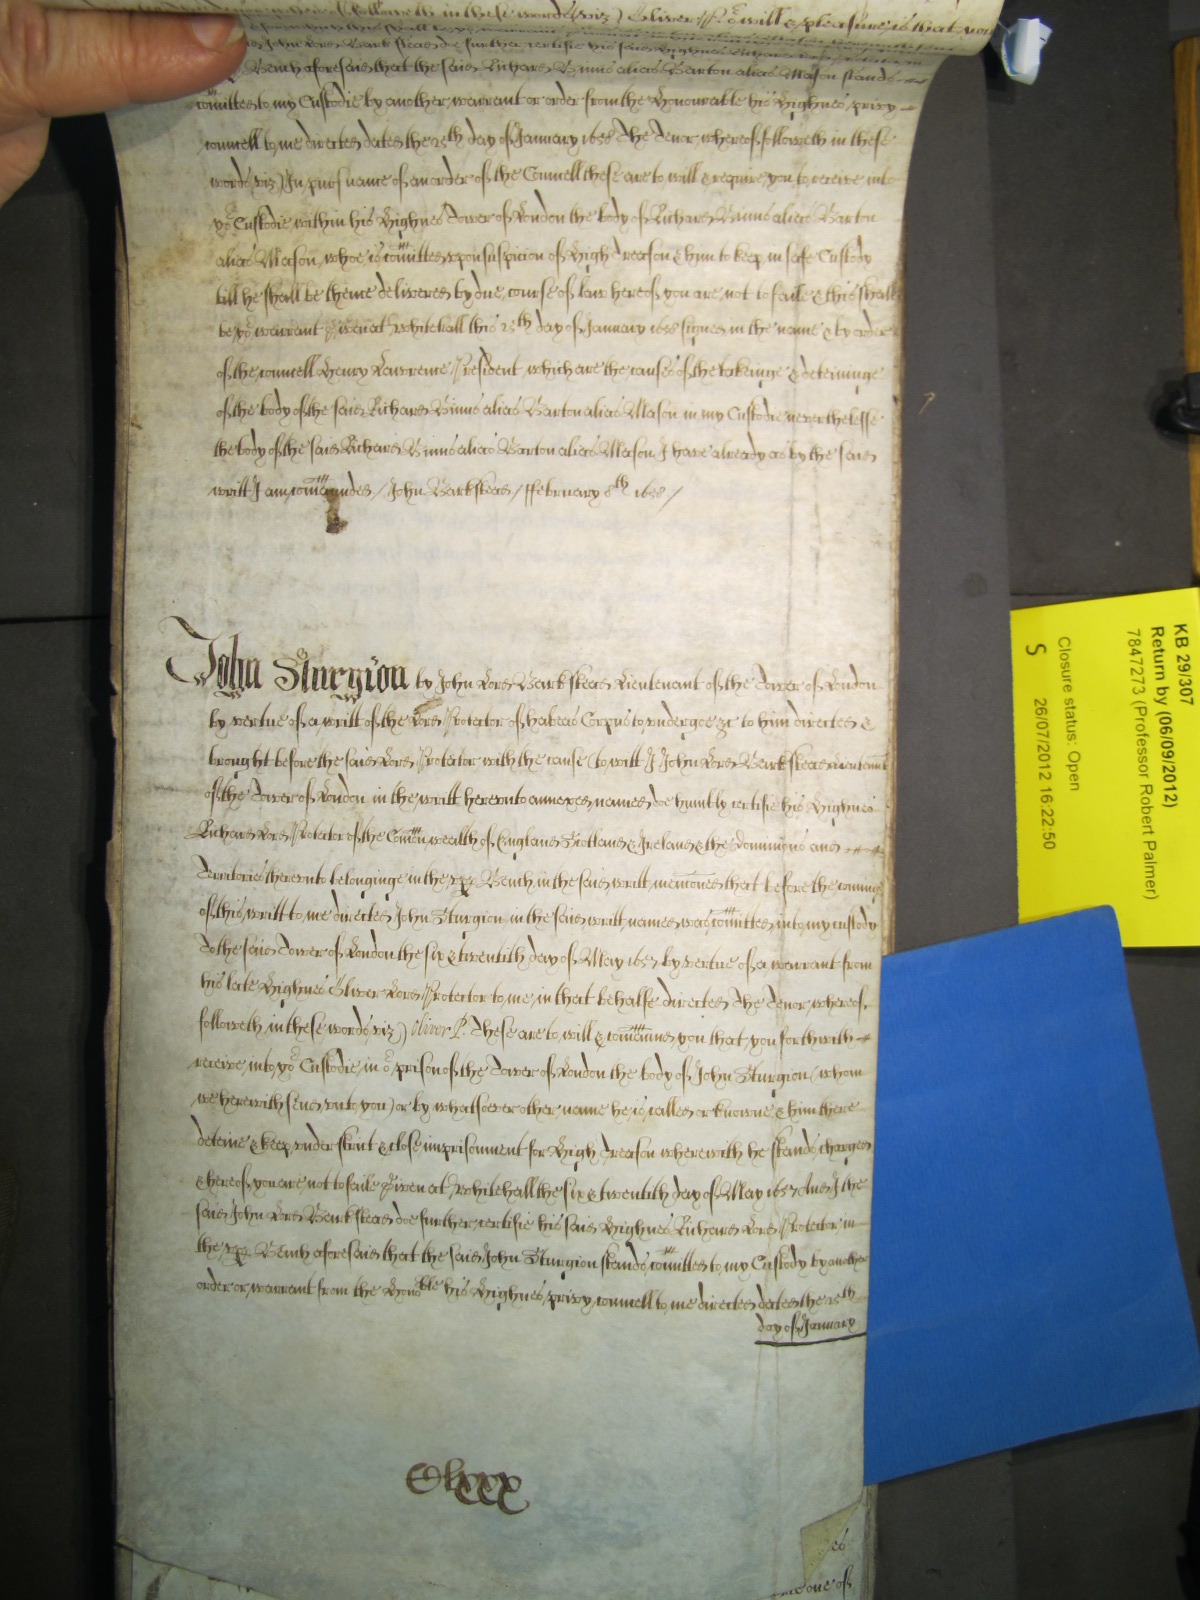 followeth in these words viz) Oliver P. or will & pleasure is that you
said John Lord Barkstead doe further certifie his said Highnes Richard
Bench aforesaid that the said Richard Binns alias Barton alias Mason stands
comitted to my Custodie by another warrant or order from the Honourable his Highnes privy
councell to me directed dated the 25th day of January 1658 The Tenor whereof followeth in these
words viz) In pursuance of an order of the Councell these are to will & require you to receive into
yor Custodie within his Highnes Tower of London the body of Richard Binns alias Barton
alias Mason, whoe is comitted upon suspicion of High Treason & him to keep in safe Custody
till he shall be thence delivered by due course of law hereof you are not to faile & this shall
be yor warrant Given at Whitehall this 25th day of January 1658 signed in the name & by order
of the councell Henry Lawrence President which are the causes of the takeinge & deteininge
of the body of the said Richard Binns alias Barton alias Mason in my Custodie neverthelesse
the body of the said Richard Binns alias Barton alias Mason I have already as by the said
writt I am comaunded / John Barkstead / ffebruary 8th 1658 /
John Sturgion by John Lord Barkstead Lieutenant of the Tower of London
by vertue of a writt of the Lord Protector of habeas Corpus to undergoe &c to him directed &
brought before the said Lord Protector with the cause (to witt) I John Lord Barkstead Lieutenant
of the Tower of London in the writt hereunto annexed named doe humbly certifie his Highnes
Richard Lord Protector of the Comonwealth of England Scotland & Ireland & the dominions and
Territories thereunto belonginge in the upper Bench in the said writt mencioned that before the coming
of this writt to me directed John Sturgion in the said writt named was comitted into my custody
To the said Tower of London the six & twentith day of May 1657 by vertue of a warrant from
his late Highnes Oliver Lord Protector to me in that behalfe directed The Tenor whereof
followeth in these words viz) Oliver P. These are to will & comaund you that you forthwith
receive into yor Custodie in or prison of the Tower of London the body of John Sturgion (whom
we herewith send unto you) or by whatsoever other name he is called or knowne & him there
deteine & keep under strict & close imprisonment for High Treason wherewith he stands charged
& hereof you are not to faile Given at Whitehall the six & twentith day of May 1657 And I the
said John Lord Barkstead doe further certifie his said Highnes Richard Lord Protector in
the upper Bench aforesaid that the said John Sturgion stands comitted to my Custody by another
order or warrant from the Honoble his Highnes privy councell to me directed dated the 25th
day of January
KB 29/307
Return by (06/09/2012)
7847273 (Professor Robert Palmer)
Closure status: Open
S 26/07/2012 16:22:50
one of